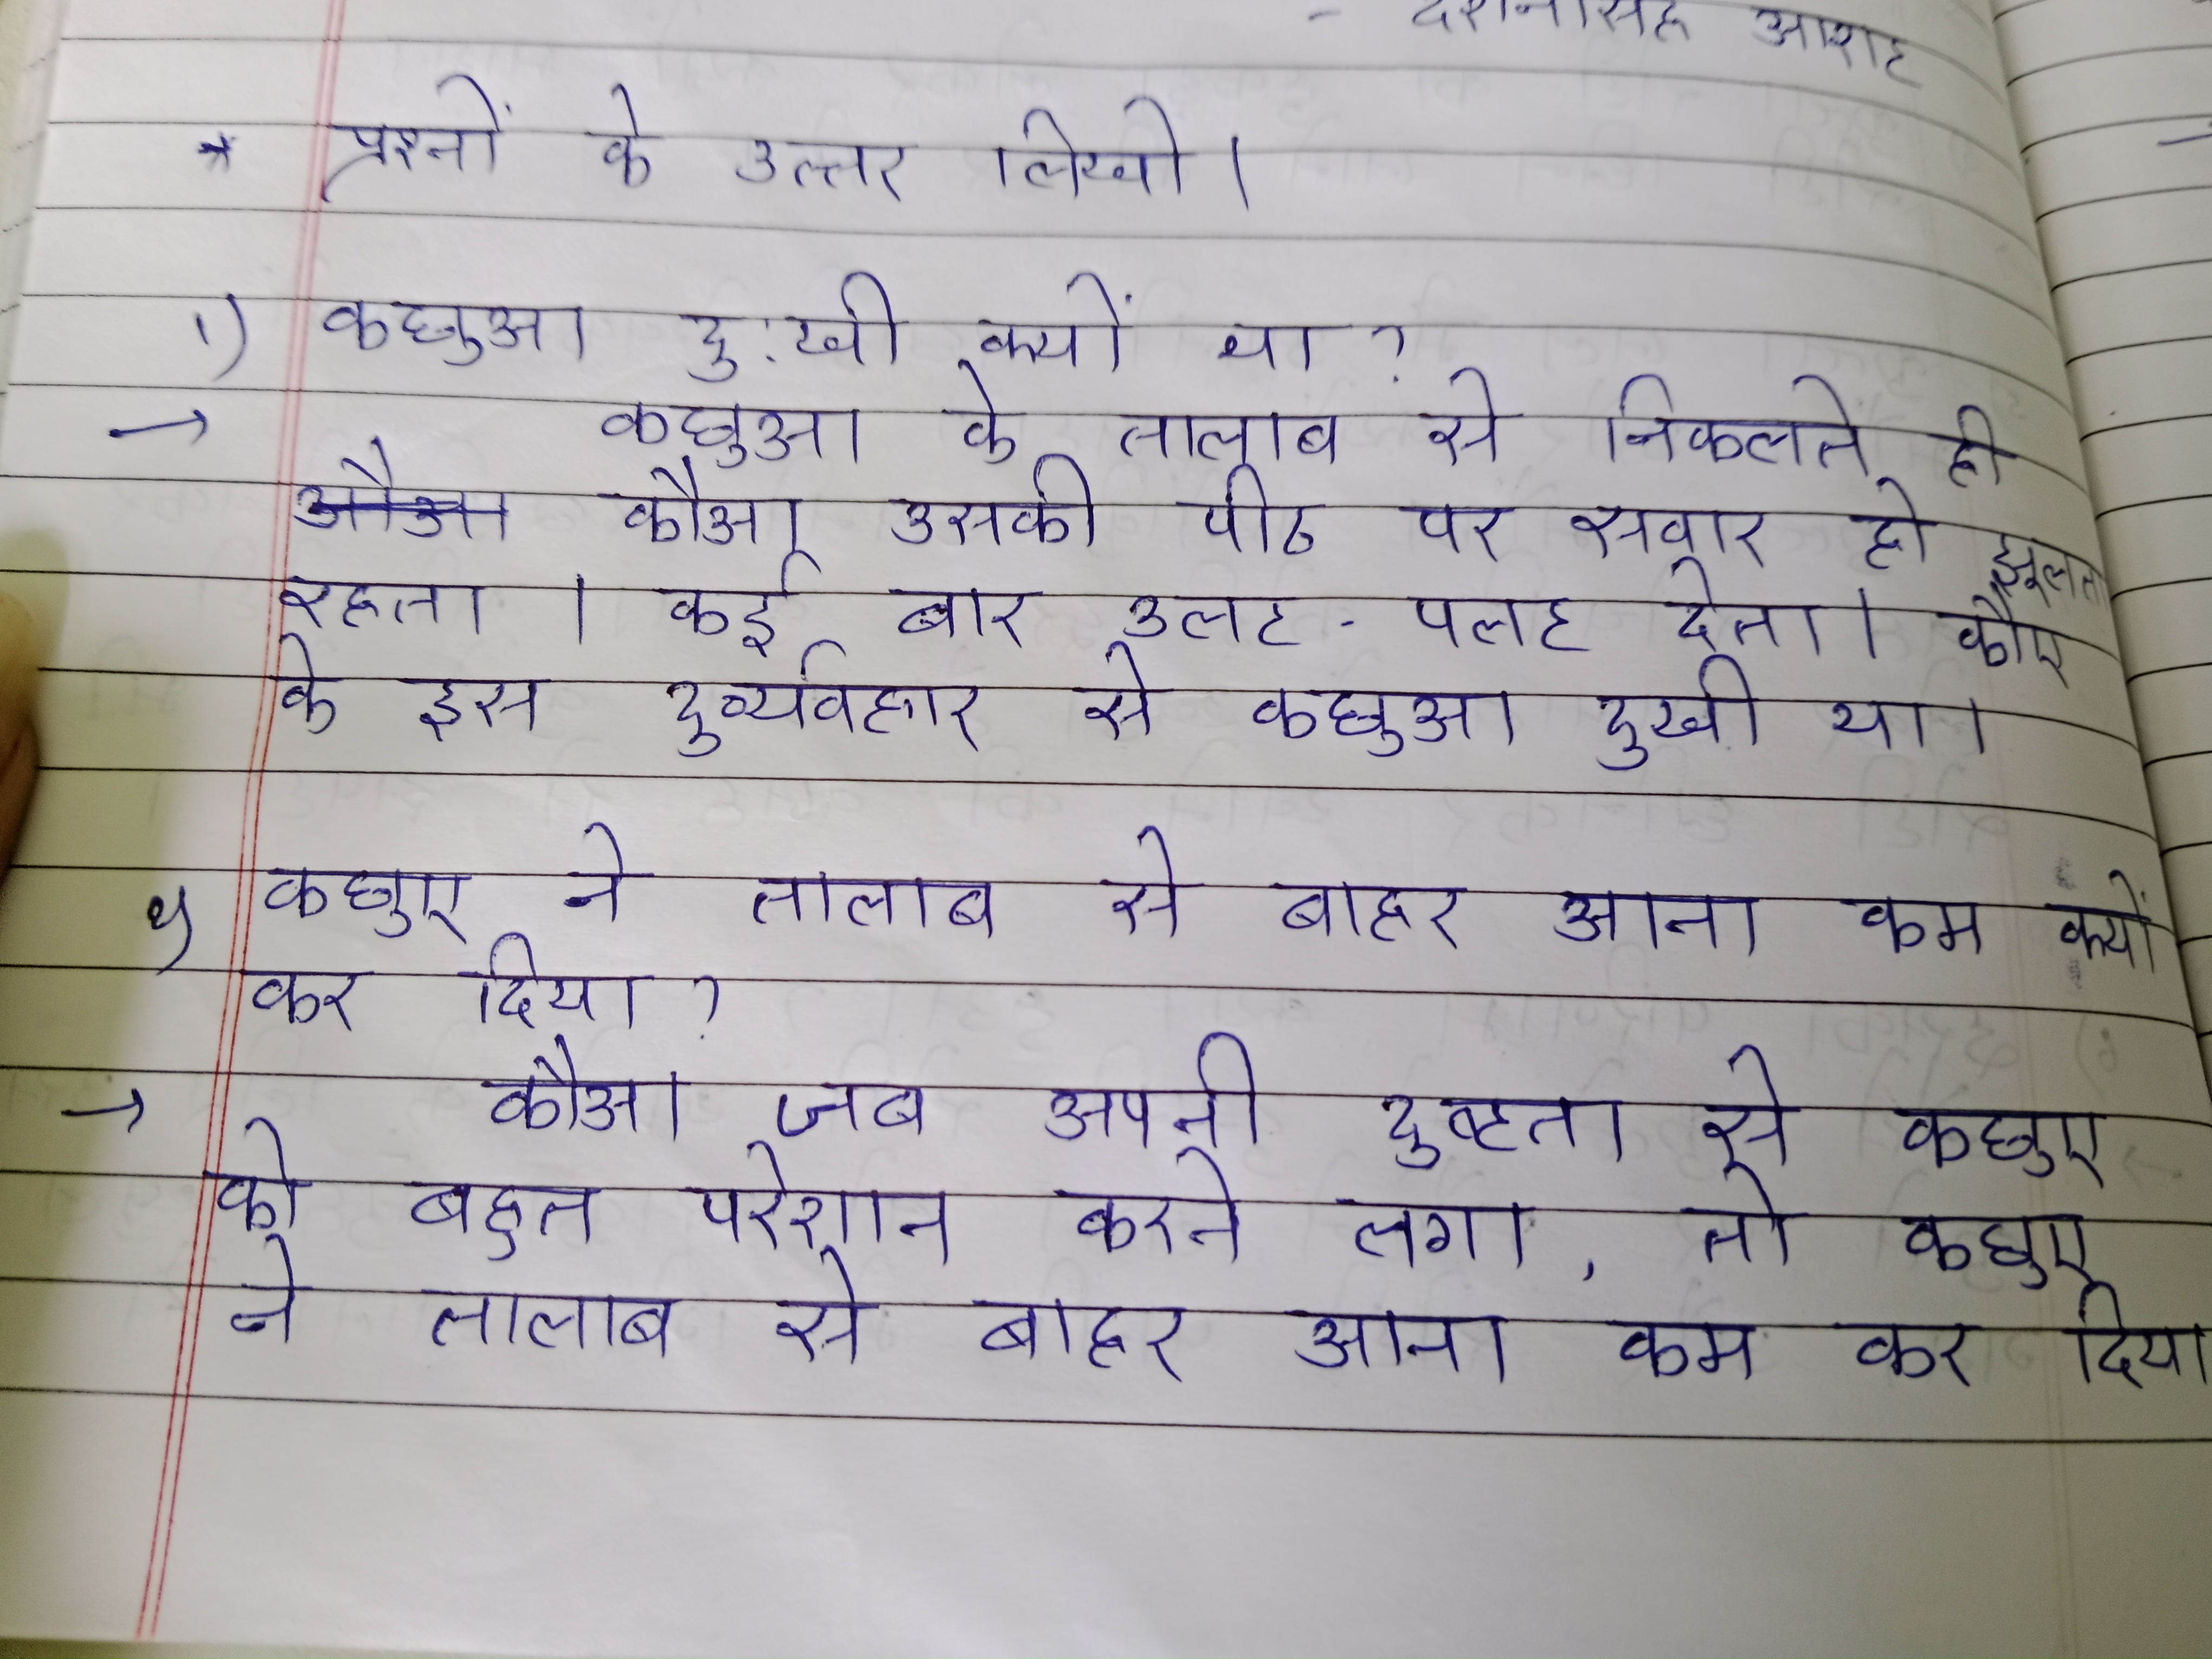 - दर्शनसिंह आशट
* प्रश्नों के उत्तर लिखो।
1) कछुआ दु:खी क्यों था?
→ कछुआ के तालाब से निकलते ही
कौआ उसकी पीठ पर सवार हो झूलता
रहता । कई बार उलट-पलट देता। कौए
के इस दुर्व्यवहार से कछुआ दुखी था।
कछुए ने तालाब से बाहर आना कम क्यों
कर दिया?
→ कौआ जब अपनी दुष्टता से कछुए
को बहुत परेशान करने लगा, तो कछुए
ने तालाब से बाहर आना कम कर दिया